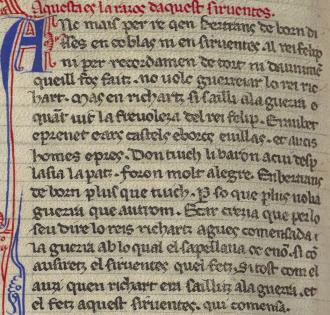 Aquest es la razos daquest siruentes.
Anc mais per re qen bertrans de born di
ses en coblas ni en siruentes al rei felip
ni per recordamen de tort ni daunimen
queill fos faitz. no uolc guerreiar lo rei ric
hart. Mas en richartz si sailli a la guerra q
quant uit la freuoleza del rei felip. E raubet
e prenet e ars castels e borcs e uillas. et aucis
homes e pres. Don tuich li baron a cui desp
lasia la patz. foron molt alegre. En bertrans
de born plus que tuich. P so que plus uolia
guerra que autrom. E car crezia que per lo
seu dire lo reis richartz agues comensada
la guerra ab lo qual el sapellaua oc e no. si co
ausiretz el siruentes quel fetz. Si tost com el
auzi quen richart era saillitz a la guerra. et
el fetz aquest siruentes. qui comensa.